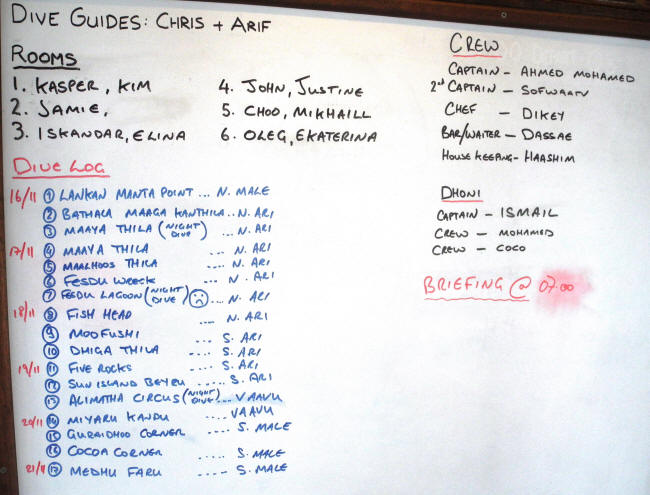 DIVE GUIDES: CHRIS + ARIF
ROOMS
1. KASPER, KIM
2. JAMIE,
3. ISKANDAR, ELINA
4. JOHN, JUSTINE
5. CHOO, MIKHAILL
6. OLEG, EKATERINA
DIVE LOG
16/11 1 LANKAN MANTA POINT ... N. MALE
2 BATHALA MAAGA KANTHILA .. N. ARI
3 MAAYA THILA (NIGHT DIVE) ... N. ARI
17/11 4 MAAYA THILA ... N. ARI
5 MAALHOOS THILA ... N. ARI
6 FESDU WRECK ... N. ARI
7 FESDU LAGOON (NIGHT DIVE) ... N. ARI
18/11 8 FISH HEAD .... N. ARI
9 MOOFUSHI ... S. ARI
10 DHIGA THILA .... S. ARI
19/11 11 FIVE ROCKS .... S. ARI
12 SUN ISLAND BEYRU ..... S. ARI
13 ALIMATHA CIRCUS (NIGHT DIVE) ... VAAVU
20/11 14 MIYARU KANDU .... VAAVU
15 GURAIDHOO CORNER .... S. MALE
16 COCOA CORNER .... S. MALE
21/11 17 MEDHU FARU .... S. MALE
CREW
CAPTAIN - AHMED MOHAMED
2nd CAPTAIN - SOFWAAN
CHEF - DIKEY
BAR/WAITER - DASSAE
HOUSE KEEPING - HAASHIM
DHONI
CAPTAIN - ISMAIL
CREW - MOHAMED
CREW - COCO
BRIEFING @ 07.00